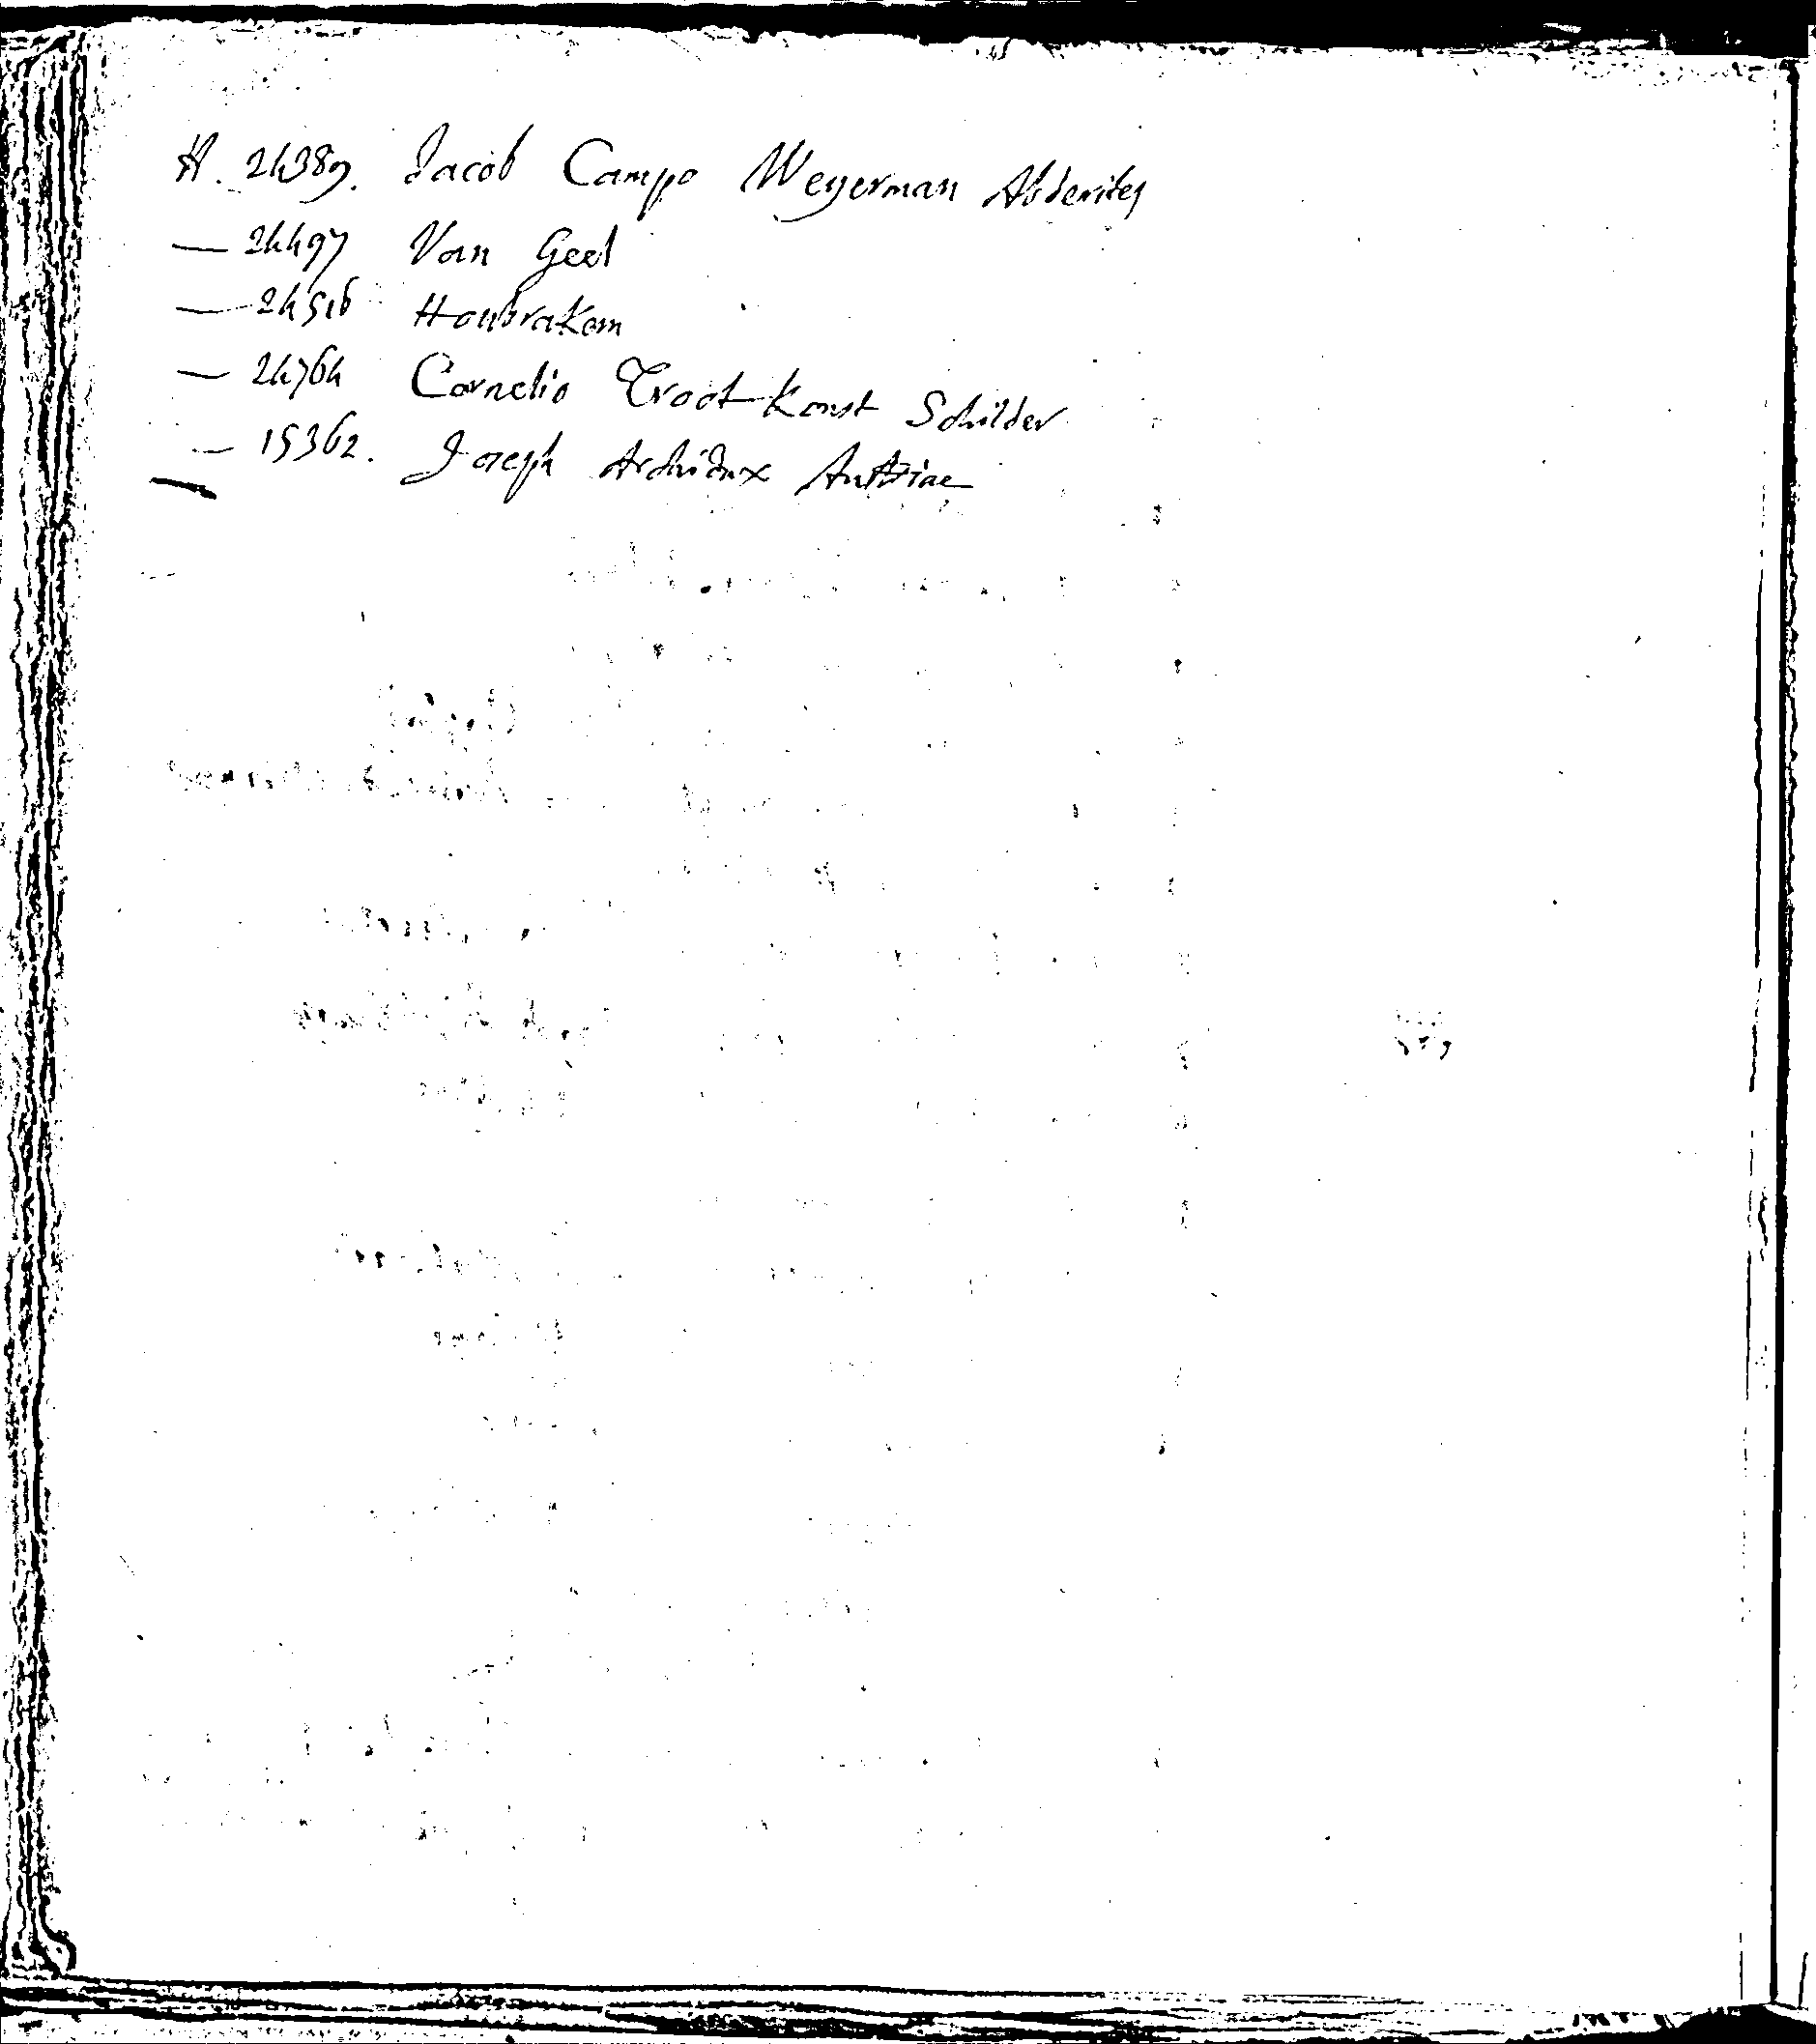 H. 24389. Jacob Campo Weyerman Abderites
— 24497 Van Geel
— 24516 Houbraken
— 24764 Cornelis Troost Konst Schilder
— 15362. Joseph Archidux Austriae